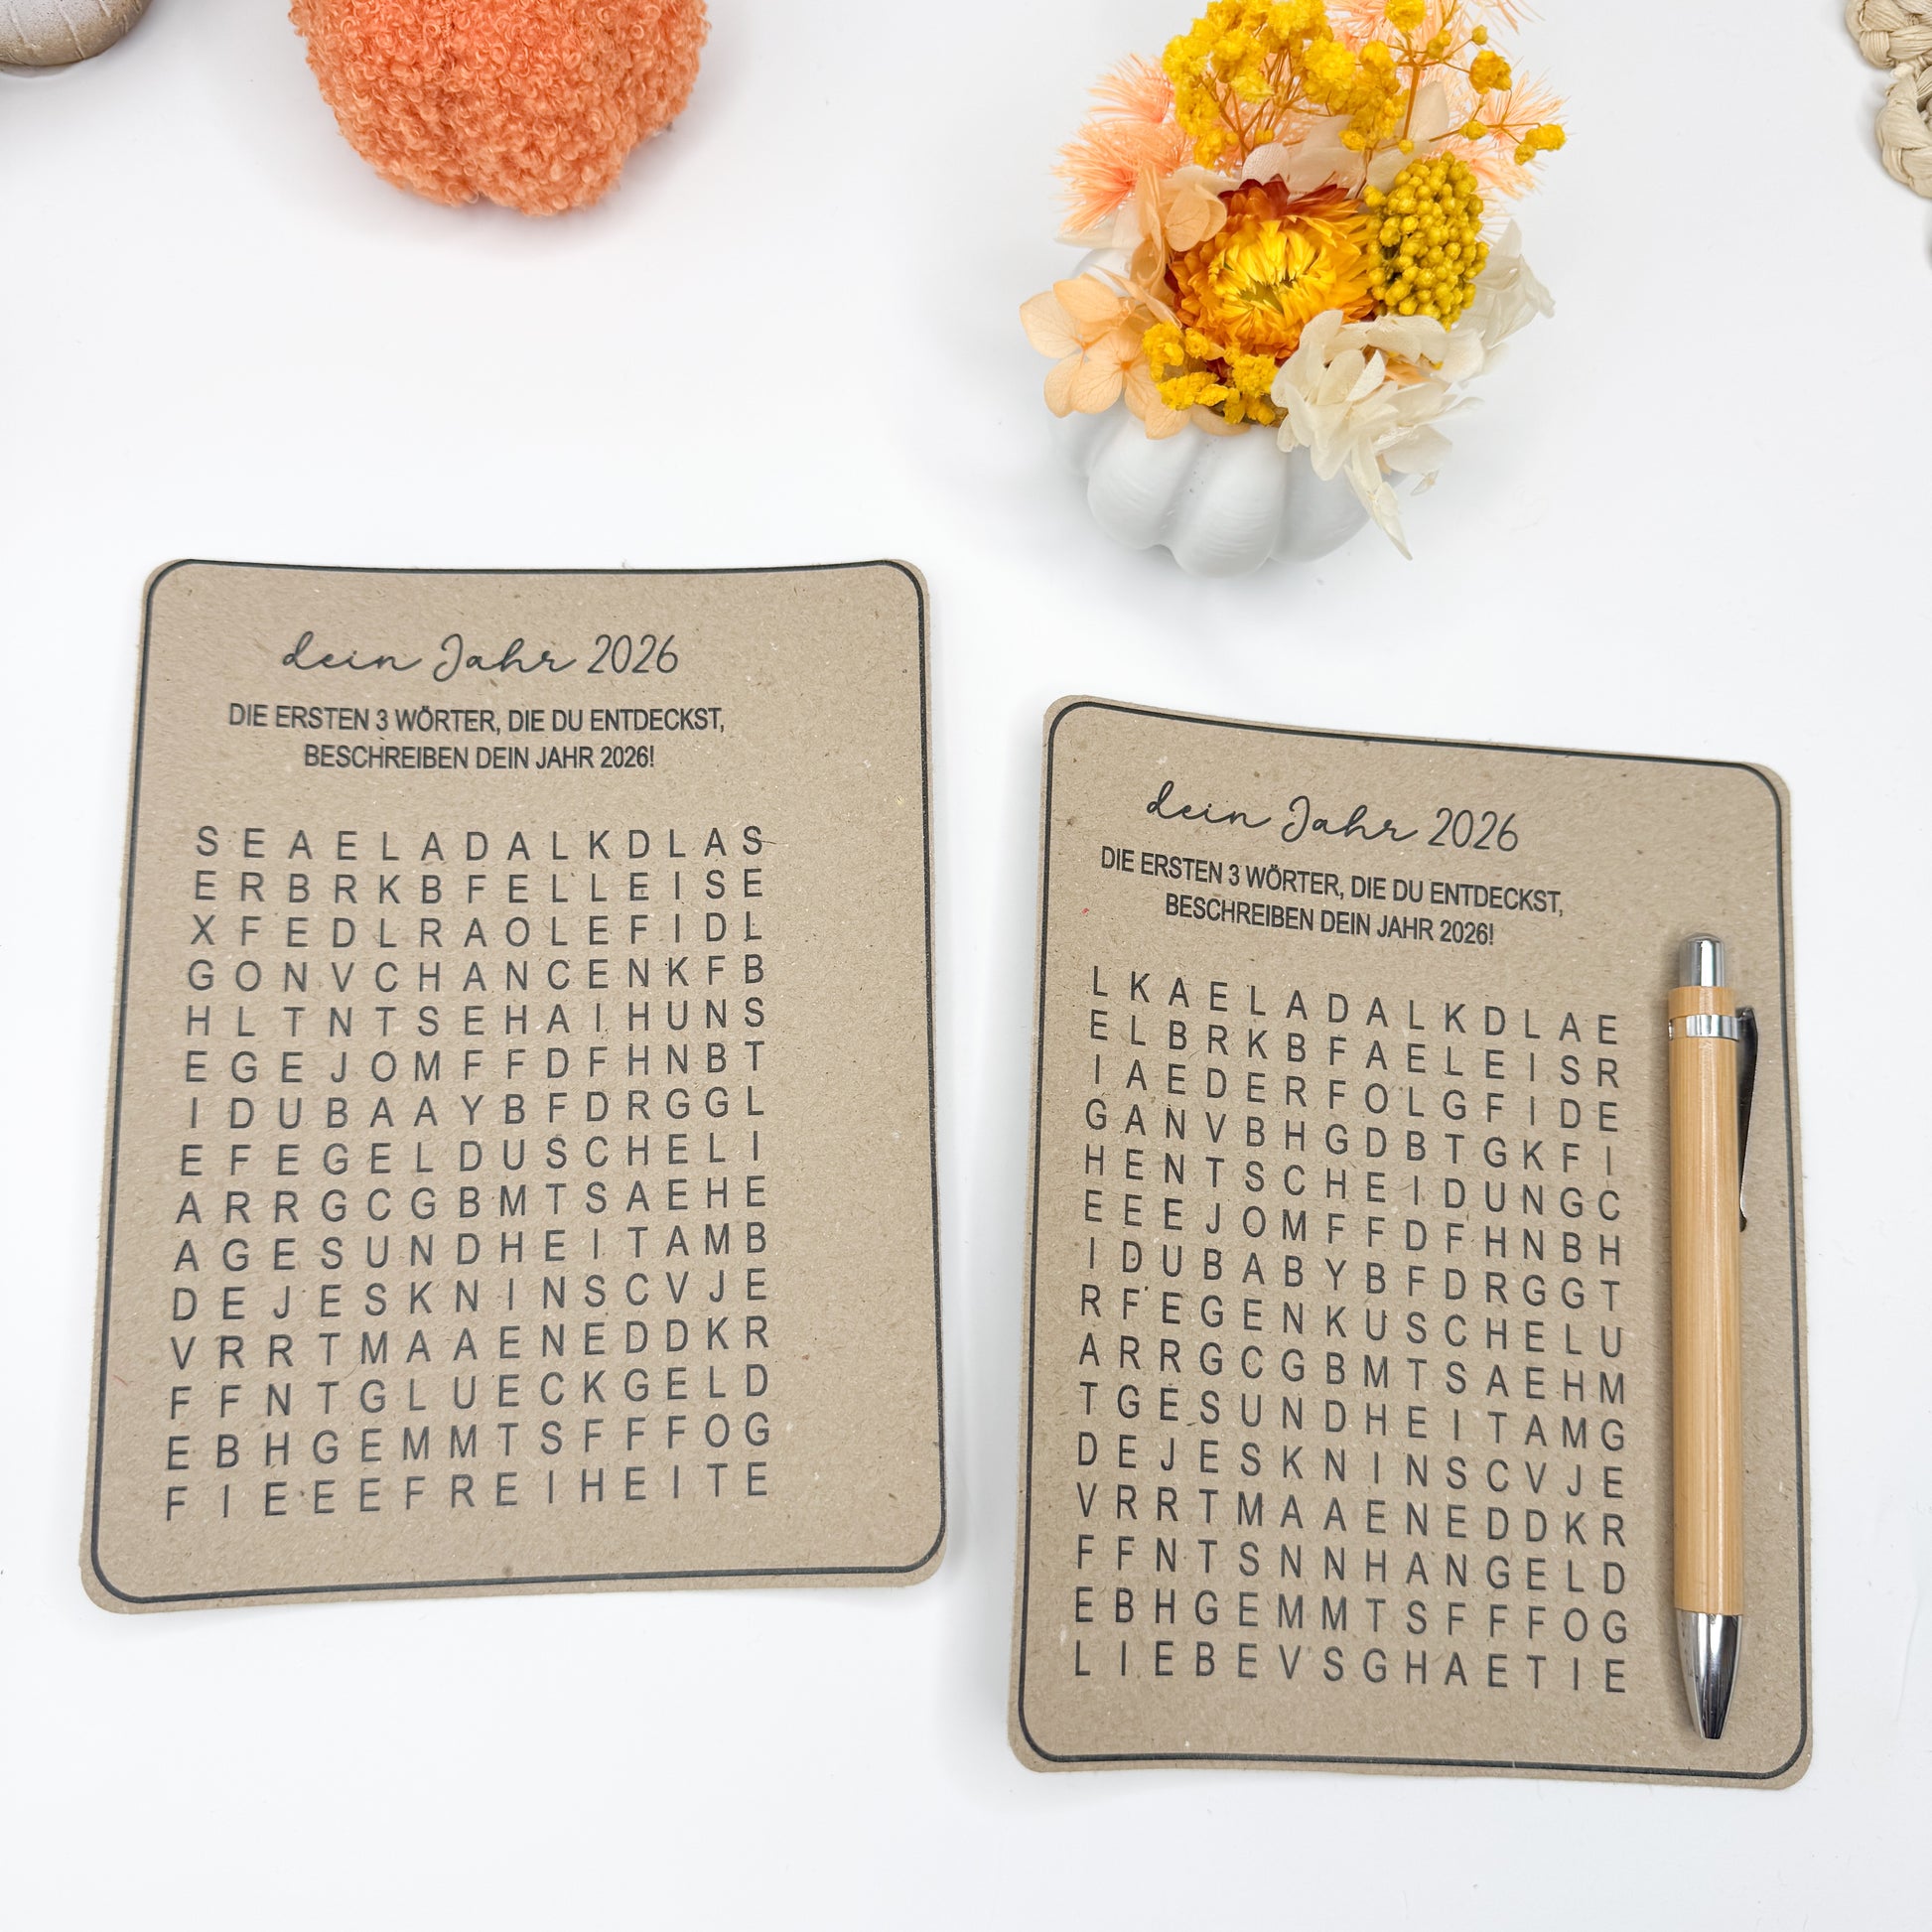 dein Jahr 2026
DIE ERSTEN 3 WÖRTER, DIE DU ENTDECKST,
BESCHREIBEN DEIN JAHR 2026!
S E A E L A D A L K D L A S
E R B R K B F E L L E I S E
X F E D L R A O L E F I D L
G O N V C H A N C E N K F B
H L T N T S E H A I H U N S
E G E J O M F F D F H N B T
I D U B A A Y B F D R G G L
E F E G E L D U S C H E L I
A R R G C G B M T S A E H E
A G E S U N D H E I T A M B
D E J E S K N I N S C V J E
V R R T M A A E N E D D K R
F F N T G L U E C K G E L D
E B H G E M M T S F F F O G
F I E E E F R E I H E I T E
dein Jahr 2026
DIE ERSTEN 3 WÖRTER, DIE DU ENTDECKST,
BESCHREIBEN DEIN JAHR 2026!
L K A E L A D A L K D L A E
E L B R K B F A E L E I S R
I A E D E R F O L G F I D E
G A N V B H G D B T G K F I
H E N T S C H E I D U N G C
E E E J O M F F D F H N B H
I D U B A B Y B F D R G G T
R F E G E N K U S C H E L U
A R R G C G B M T S A E H M
T G E S U N D H E I T A M G
D E J E S K N I N S C V J E
V R R T M A A E N E D D K R
F F N T S N N H A N G E L D
E B H G E M M T S F F F O G
L I E B E V S G H A E T I E